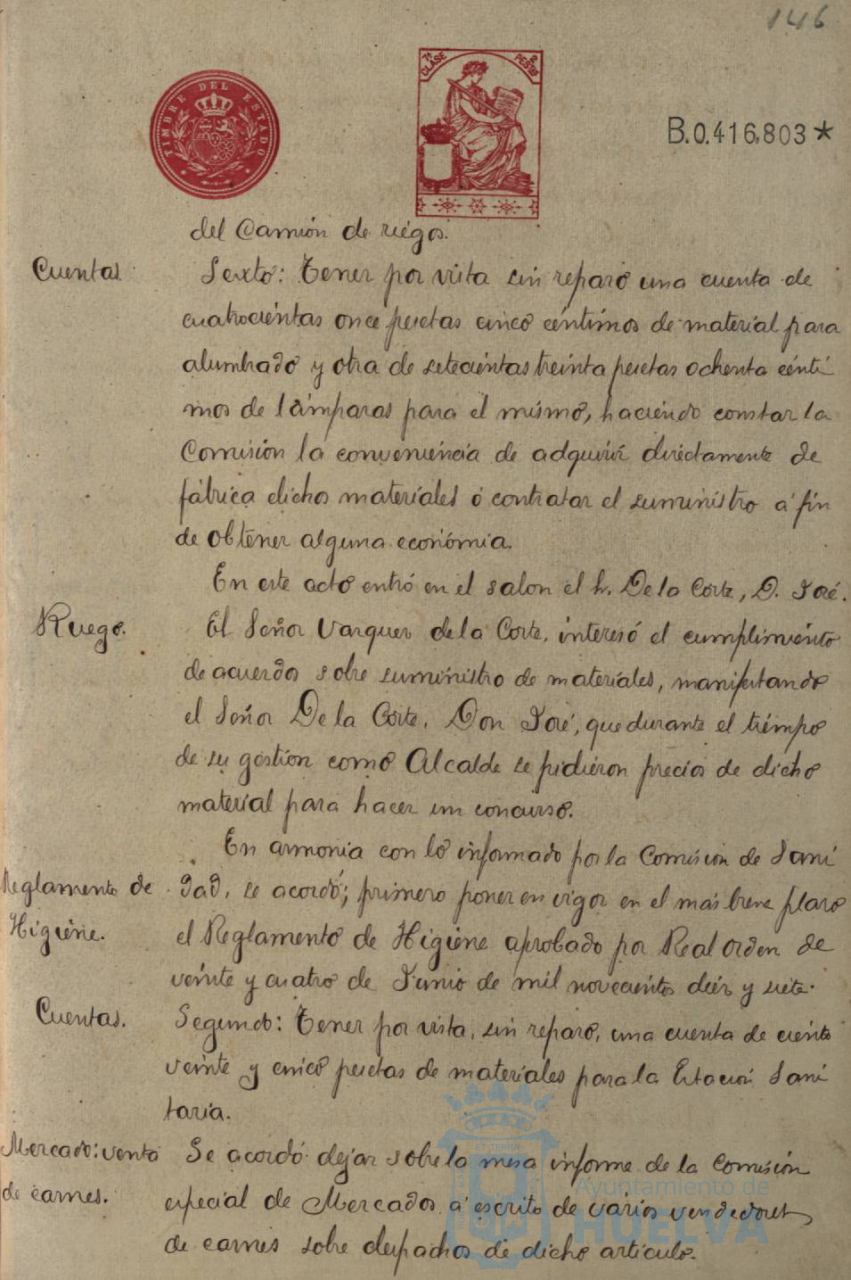 146
TIMBRE DEL ESTADO
7ª CLASE
2 PESETAS
B.0.416,803*
del Camión de riegos.
Cuentas.
Sexto: Tener por vista sin reparo una cuenta de
cuatrocientas once pesetas cinco céntimos de material para
alumbrado y otra de setecientas treinta pesetas ochenta cénti
mos de lámparas para el mismo, haciendo constar la
Comisión la conveniencia de adquirir directamente de
fábrica dichos materiales ó contratar el suministro á fin
de obtener alguna economia.
En este acto entró en el salon el Sr. De la Corte, D. José.
Ruego.
El Señor Vazquez de la Corte, interesó el cumplimiento
de acuerdo sobre suministro de materiales, manifestando
el Señor De la Corte, Don José, que durante el tiempo
de su gestion como Alcalde se pidieron precios de dicho
material para hacer un concurso.
En armonia con lo informado por la Comision de Sani
Reglamento de
Higiene.
dad, se acordó; primero poner en vigor en el más breve plazo
el Reglamento de Higiene aprobado por Real orden de
veinte y cuatro de Junio de mil novecientos diez y siete.
Cuentas.
Segundo: Tener por vista, sin reparo, una cuenta de ciento
veinte y cinco pesetas de materiales para la Estación Sani
taria.
Mercado: venta
de carnes.
Se acordó dejar sobre la mesa informe de la Comisión
especial de Mercados á escrito de varios vendedores
de carnes sobre despachos de dicho artículo.
Ayuntamiento de
HUELVA